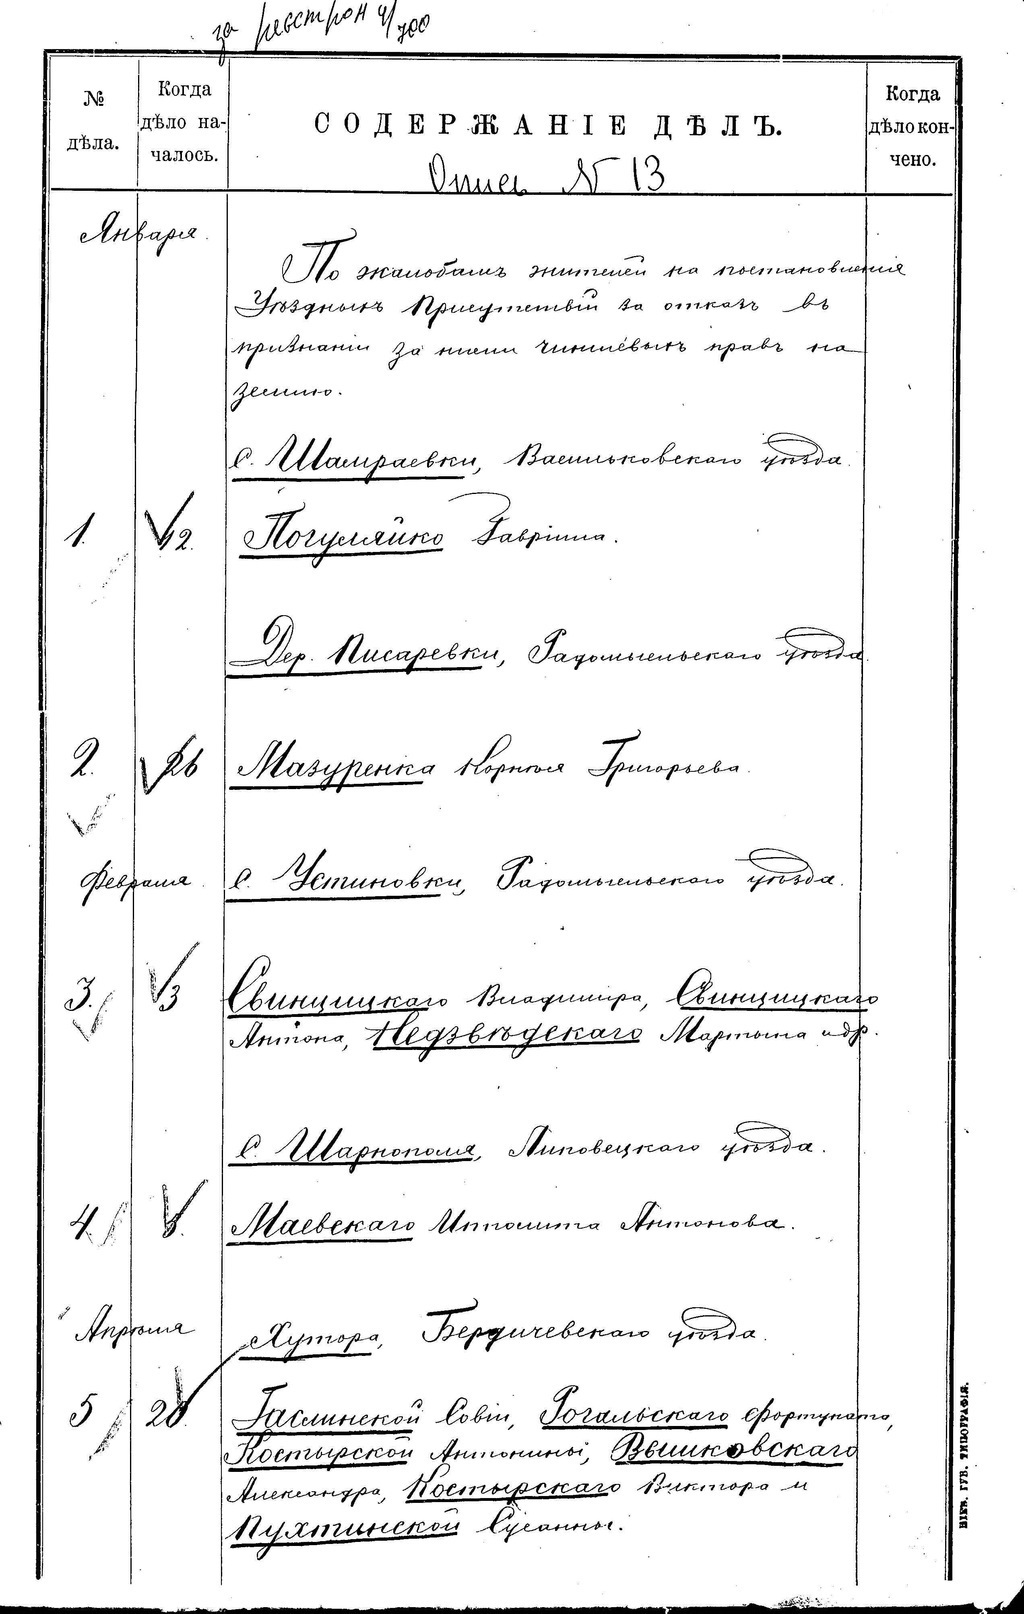 за реестром
№ дѣла.
Когда дѣло на-
чалось.
СОДЕРЖАНІЕ ДѢЛЪ.
Когда дѣло кон-
чено.
Опись N 13
Января.
По жалобамъ жителей на постановленія
Уѣздныхъ Присутствій за отказъ въ
признаніи за ними чиншевыхъ правъ на
землю.
С. Шамраевки, Васильковскаго уѣзда.
1. 12. Погуляйко Гавріила.
Дер. Писаревки, Радомысльскаго уѣзда.
2. 26 Мазуренка Корнѣя Григорьева.
Февраля. С. Устиновки, Радомысльскаго уѣзда.
3. 3 Свинцицкаго Владиміра, Свинцицкаго
Антона, Недзвѣдскаго Мартына и др.
С. Шарнополя, Липовецкаго уѣзда.
4. 8. Маевскаго Ипполита Антонова.
Апрѣля Хутора, Бердичевскаго уѣзда.
5 20. Гаслинской Совіи, Рогальскаго Фортуната,
Костырской Антонины, Вышковскаго
Александра, Костырскаго Виктора и
Пухтинской Сусанны.
КІЕВ. ГУБ. ТИПОГРАФІЯ.